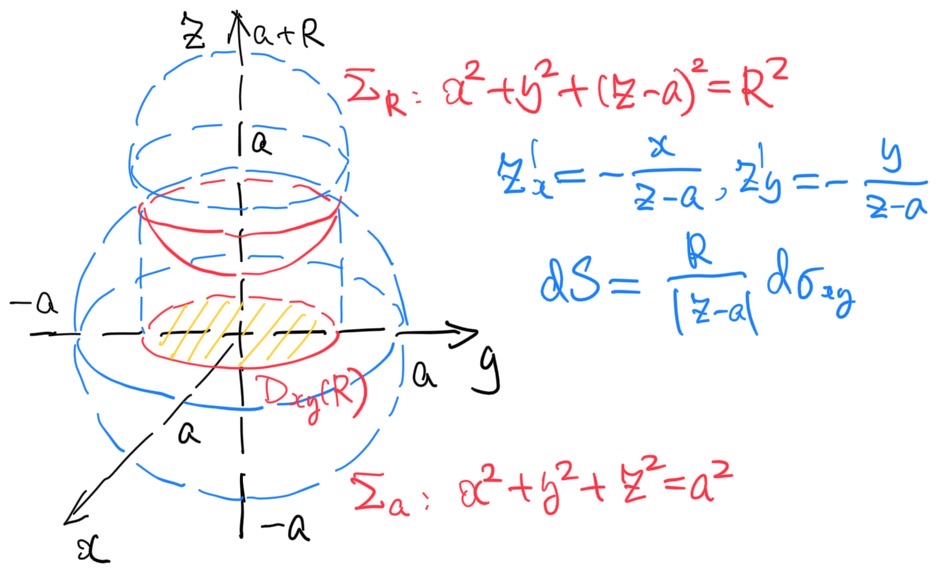 z a+R
Σ_R: x²+y²+(z-a)²=R²
a
z'x = - x/(z-a), z'y = - y/(z-a)
dS = R/|z-a| dσxy
-a
a
y
Dxy(R)
a
Σa: x²+y²+z²=a²
-a
x